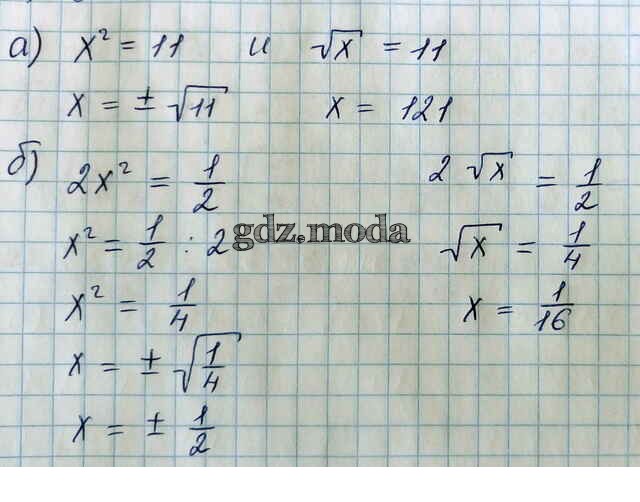 а) x² = 11 и √x = 11
x = ± √11 x = 121
б) 2x² = 1/2 2 √x = 1/2
x² = 1/2 : 2 √x = 1/4
gdz.moda
x² = 1/4 x = 1/16
x = ± √1/4
x = ± 1/2